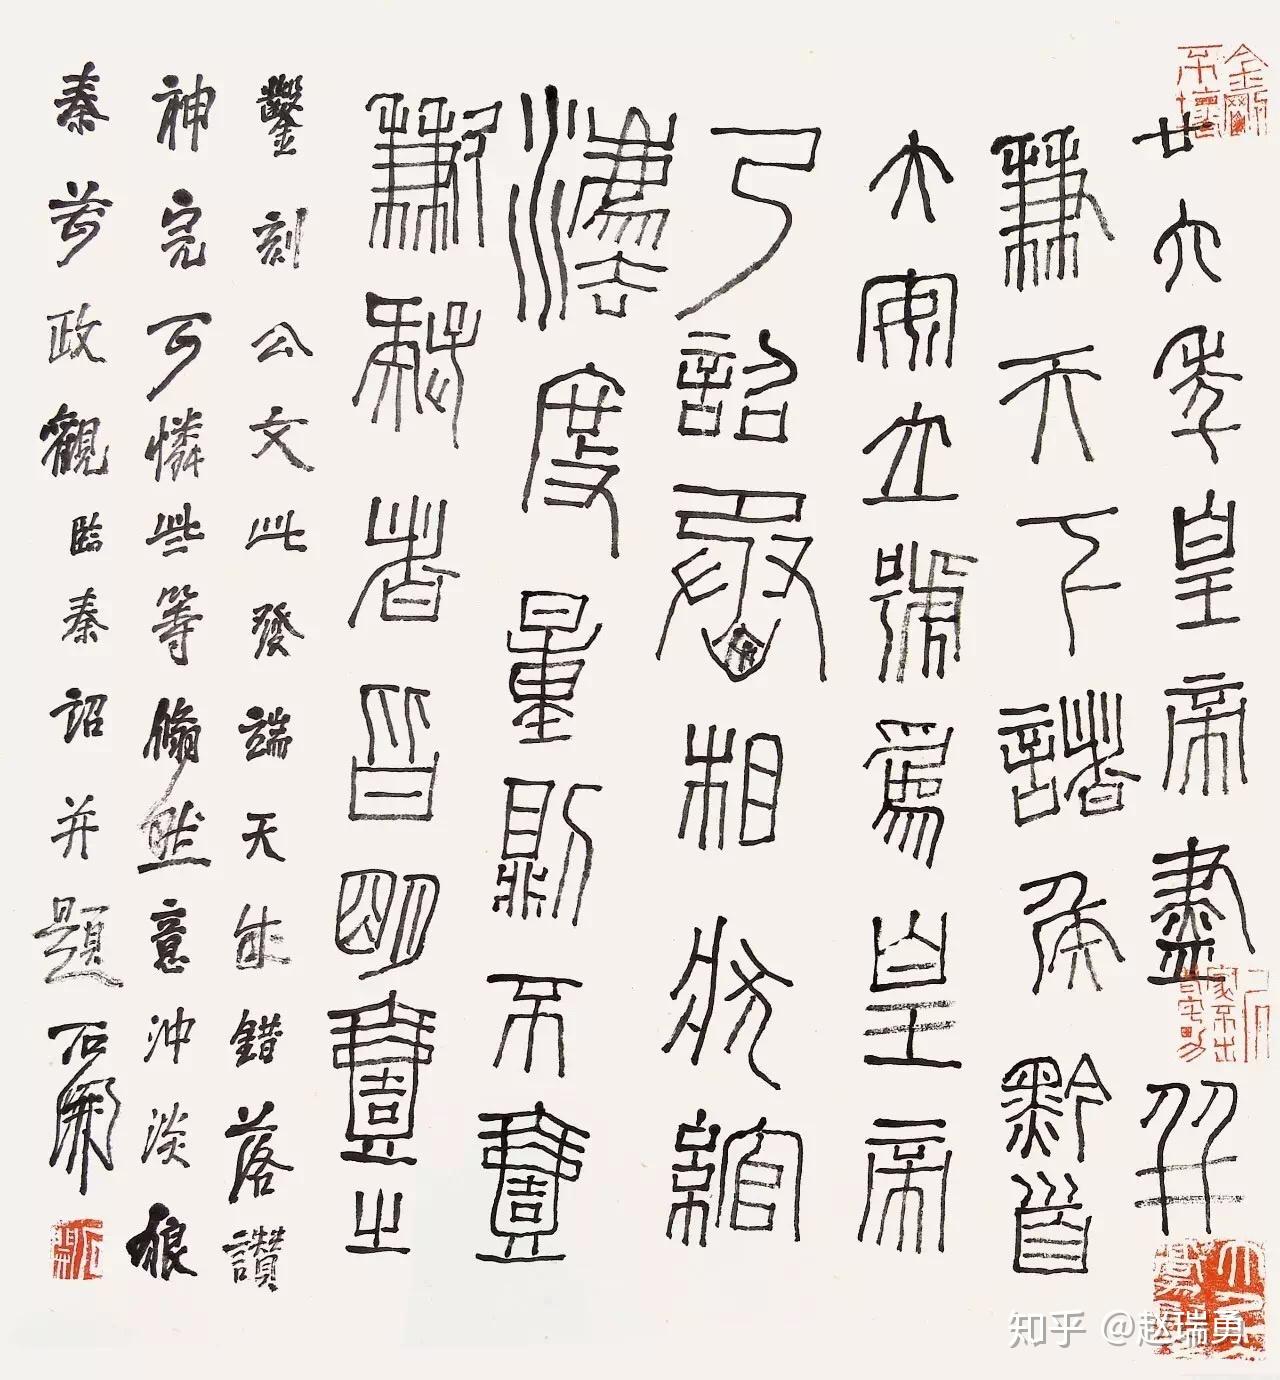 金剛不壞
廿六年皇帝盡并
兼天下諸侯黔首
大安立號爲皇帝
乃詔丞相狀綰
灋度量則不壹
歉疑者皆明壹之
鑿刻公文此發端天成錯落讚
神完可憐些等翛然意沖淡狠
秦苛政觀臨秦詔并題石開
知乎 @赵瑞勇